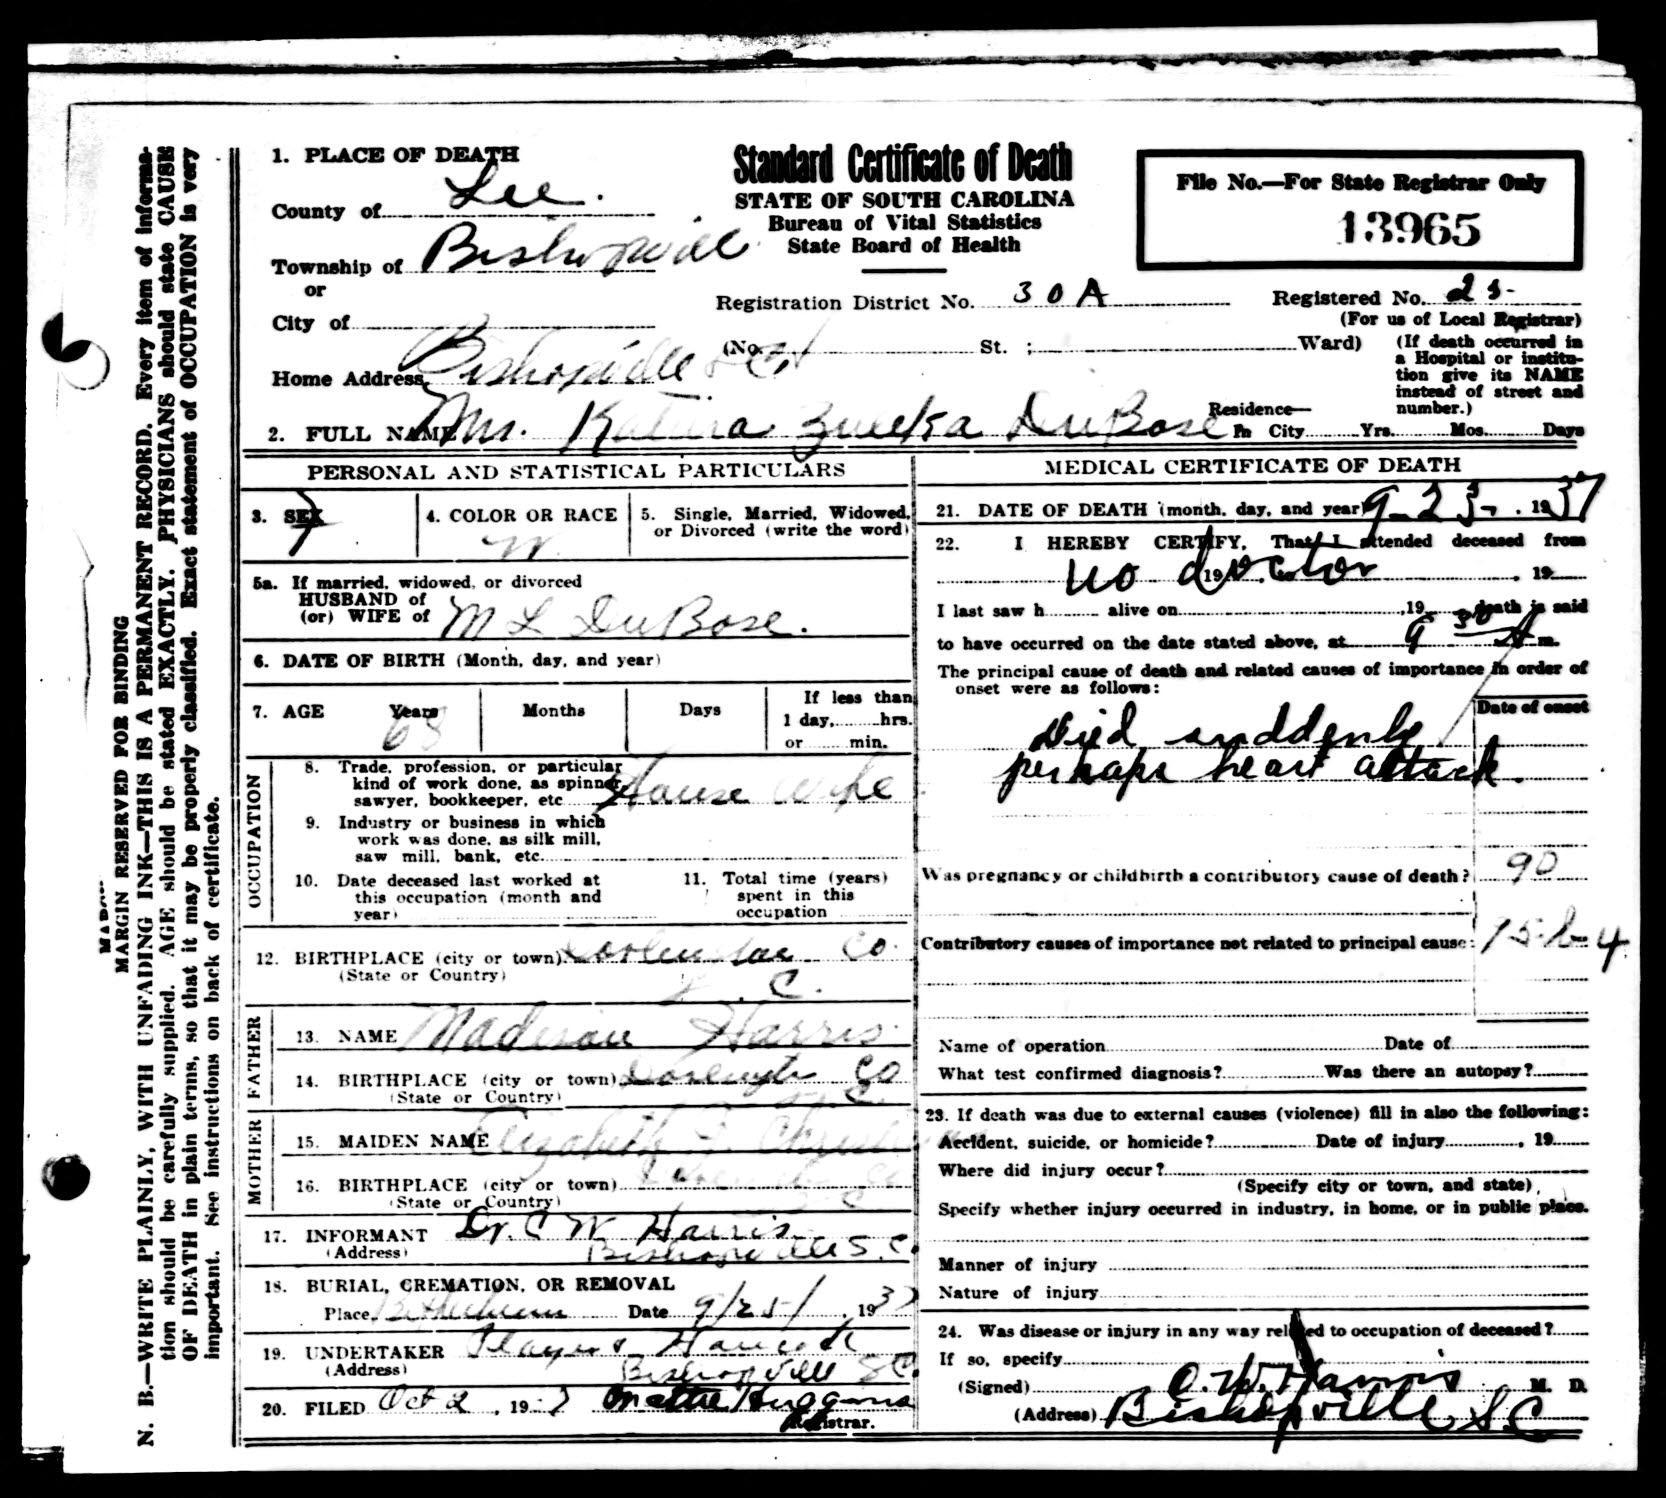 1. PLACE OF DEATH
County of Lee.
Township of Bishopville
or
City of
Home Address Bishopville S C
Standard Certificate of Death
STATE OF SOUTH CAROLINA
Bureau of Vital Statistics
State Board of Health
Registration District No. 30A
(No. St. ; Ward)
File No.—For State Registrar Only
13965
Registered No. 25
(For us of Local Registrar)
(If death occurred in
a Hospital or institu-
tion give its NAME
instead of street and
number.)
2. FULL NAME Mrs. Zuleka DuBose
Residence—
In City Yrs. Mos. Days
PERSONAL AND STATISTICAL PARTICULARS
3. SEX F
4. COLOR OR RACE W
5. Single, Married, Widowed,
or Divorced (write the word)
5a. If married, widowed, or divorced
HUSBAND of
(or) WIFE of M L DuBose.
6. DATE OF BIRTH (Month, day, and year)
7. AGE Years 68 Months Days
If less than
1 day, hrs.
or min.
OCCUPATION
8. Trade, profession, or particular
kind of work done, as spinner,
sawyer, bookkeeper, etc House wife
9. Industry or business in which
work was done, as silk mill,
saw mill, bank, etc.
10. Date deceased last worked at
this occupation (month and
year)
11. Total time (years)
spent in this
occupation
12. BIRTHPLACE (city or town) Co.
(State or Country) S. C.
FATHER
13. NAME Madison Harris
14. BIRTHPLACE (city or town) Co
(State or Country) S. C.
MOTHER
15. MAIDEN NAME Elizabeth
16. BIRTHPLACE (city or town) Co
(State or Country) S C
17. INFORMANT Dr. C W Harris
(Address) Bishopville S. C.
18. BURIAL, CREMATION, OR REMOVAL
Place Bethlehem Date 9/25/ , 1937
19. UNDERTAKER Hancock
(Address) Bishopville S C.
20. FILED Oct 2 , 1937 Mattie Huggins
Registrar.
MEDICAL CERTIFICATE OF DEATH
21. DATE OF DEATH (month, day, and year) 9-23- . 1937
22. I HEREBY CERTIFY, That I attended deceased from
no doctor 19 , 19
I last saw h alive on ,19 death is said
to have occurred on the date stated above, at 9 30 A m.
The principal cause of death and related causes of importance in order of
onset were as follows:
Date of onset
Died suddenly
perhaps heart attack.
Was pregnancy or childbirth a contributory cause of death? 90
Contributory causes of importance not related to principal cause:
Name of operation Date of
What test confirmed diagnosis? Was there an autopsy?
23. If death was due to external causes (violence) fill in also the following:
Accident, suicide, or homicide? Date of injury , 19
Where did injury occur?
(Specify city or town, and state)
Specify whether injury occurred in industry, in home, or in public place.
Manner of injury
Nature of injury
24. Was disease or injury in any way related to occupation of deceased?
If so, specify
(Signed) C. W. Harris M. D.
(Address) Bishopville S C
MARGIN RESERVED FOR BINDING
N. B.—WRITE PLAINLY, WITH UNFADING INK—THIS IS A PERMANENT RECORD. Every item of informa-
tion should be carefully supplied. AGE should be stated EXACTLY. PHYSICIANS should state CAUSE
OF DEATH in plain terms, so that it may be properly classified. Exact statement of OCCUPATION is very
important. See instructions on back of certificate.